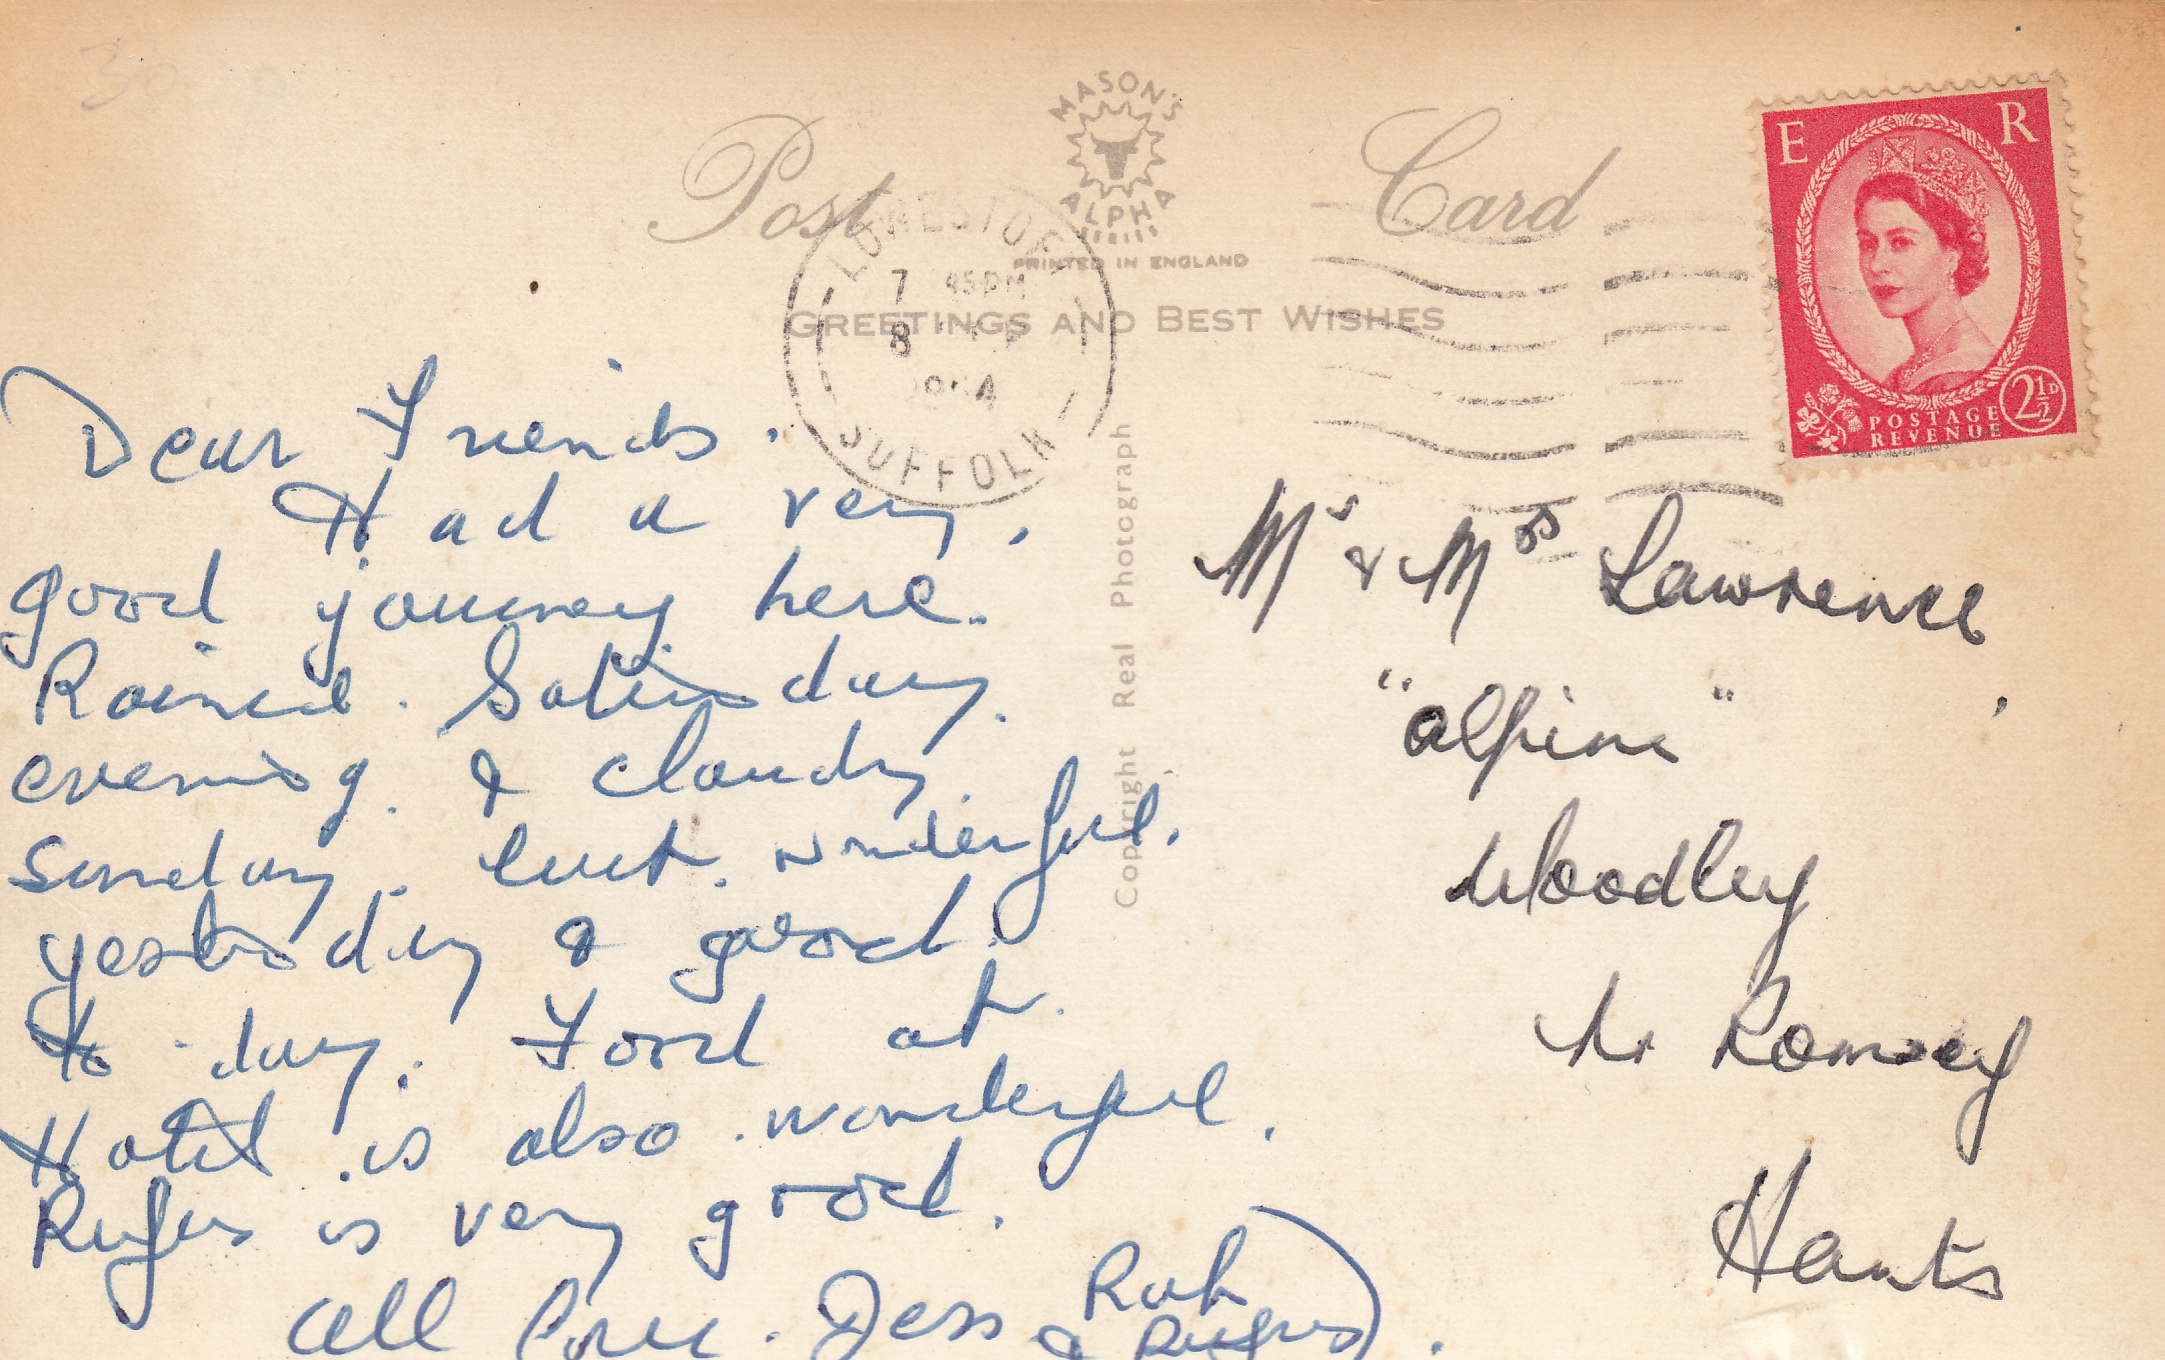 Post Card
MASON'S
ALPHA
SERIES
PRINTED IN ENGLAND
GREETINGS AND BEST WISHES
LOWESTOFT
7 45PM
8
SUFFOLK
E R
POSTAGE
REVENUE
2½D
Copyright Real Photograph
Dear Friends.
Had a very
good journey here.
Rained Saturday
evening & cloudy
Sunday. but wonderful.
yesterday & good
to-day. Food at
Hotel is also wonderful.
Rufus is very good.
All love. Jess
& Rufus
Mr & Mrs Lawrence
"Alpine"
Woodley
Nr Romsey
Hants